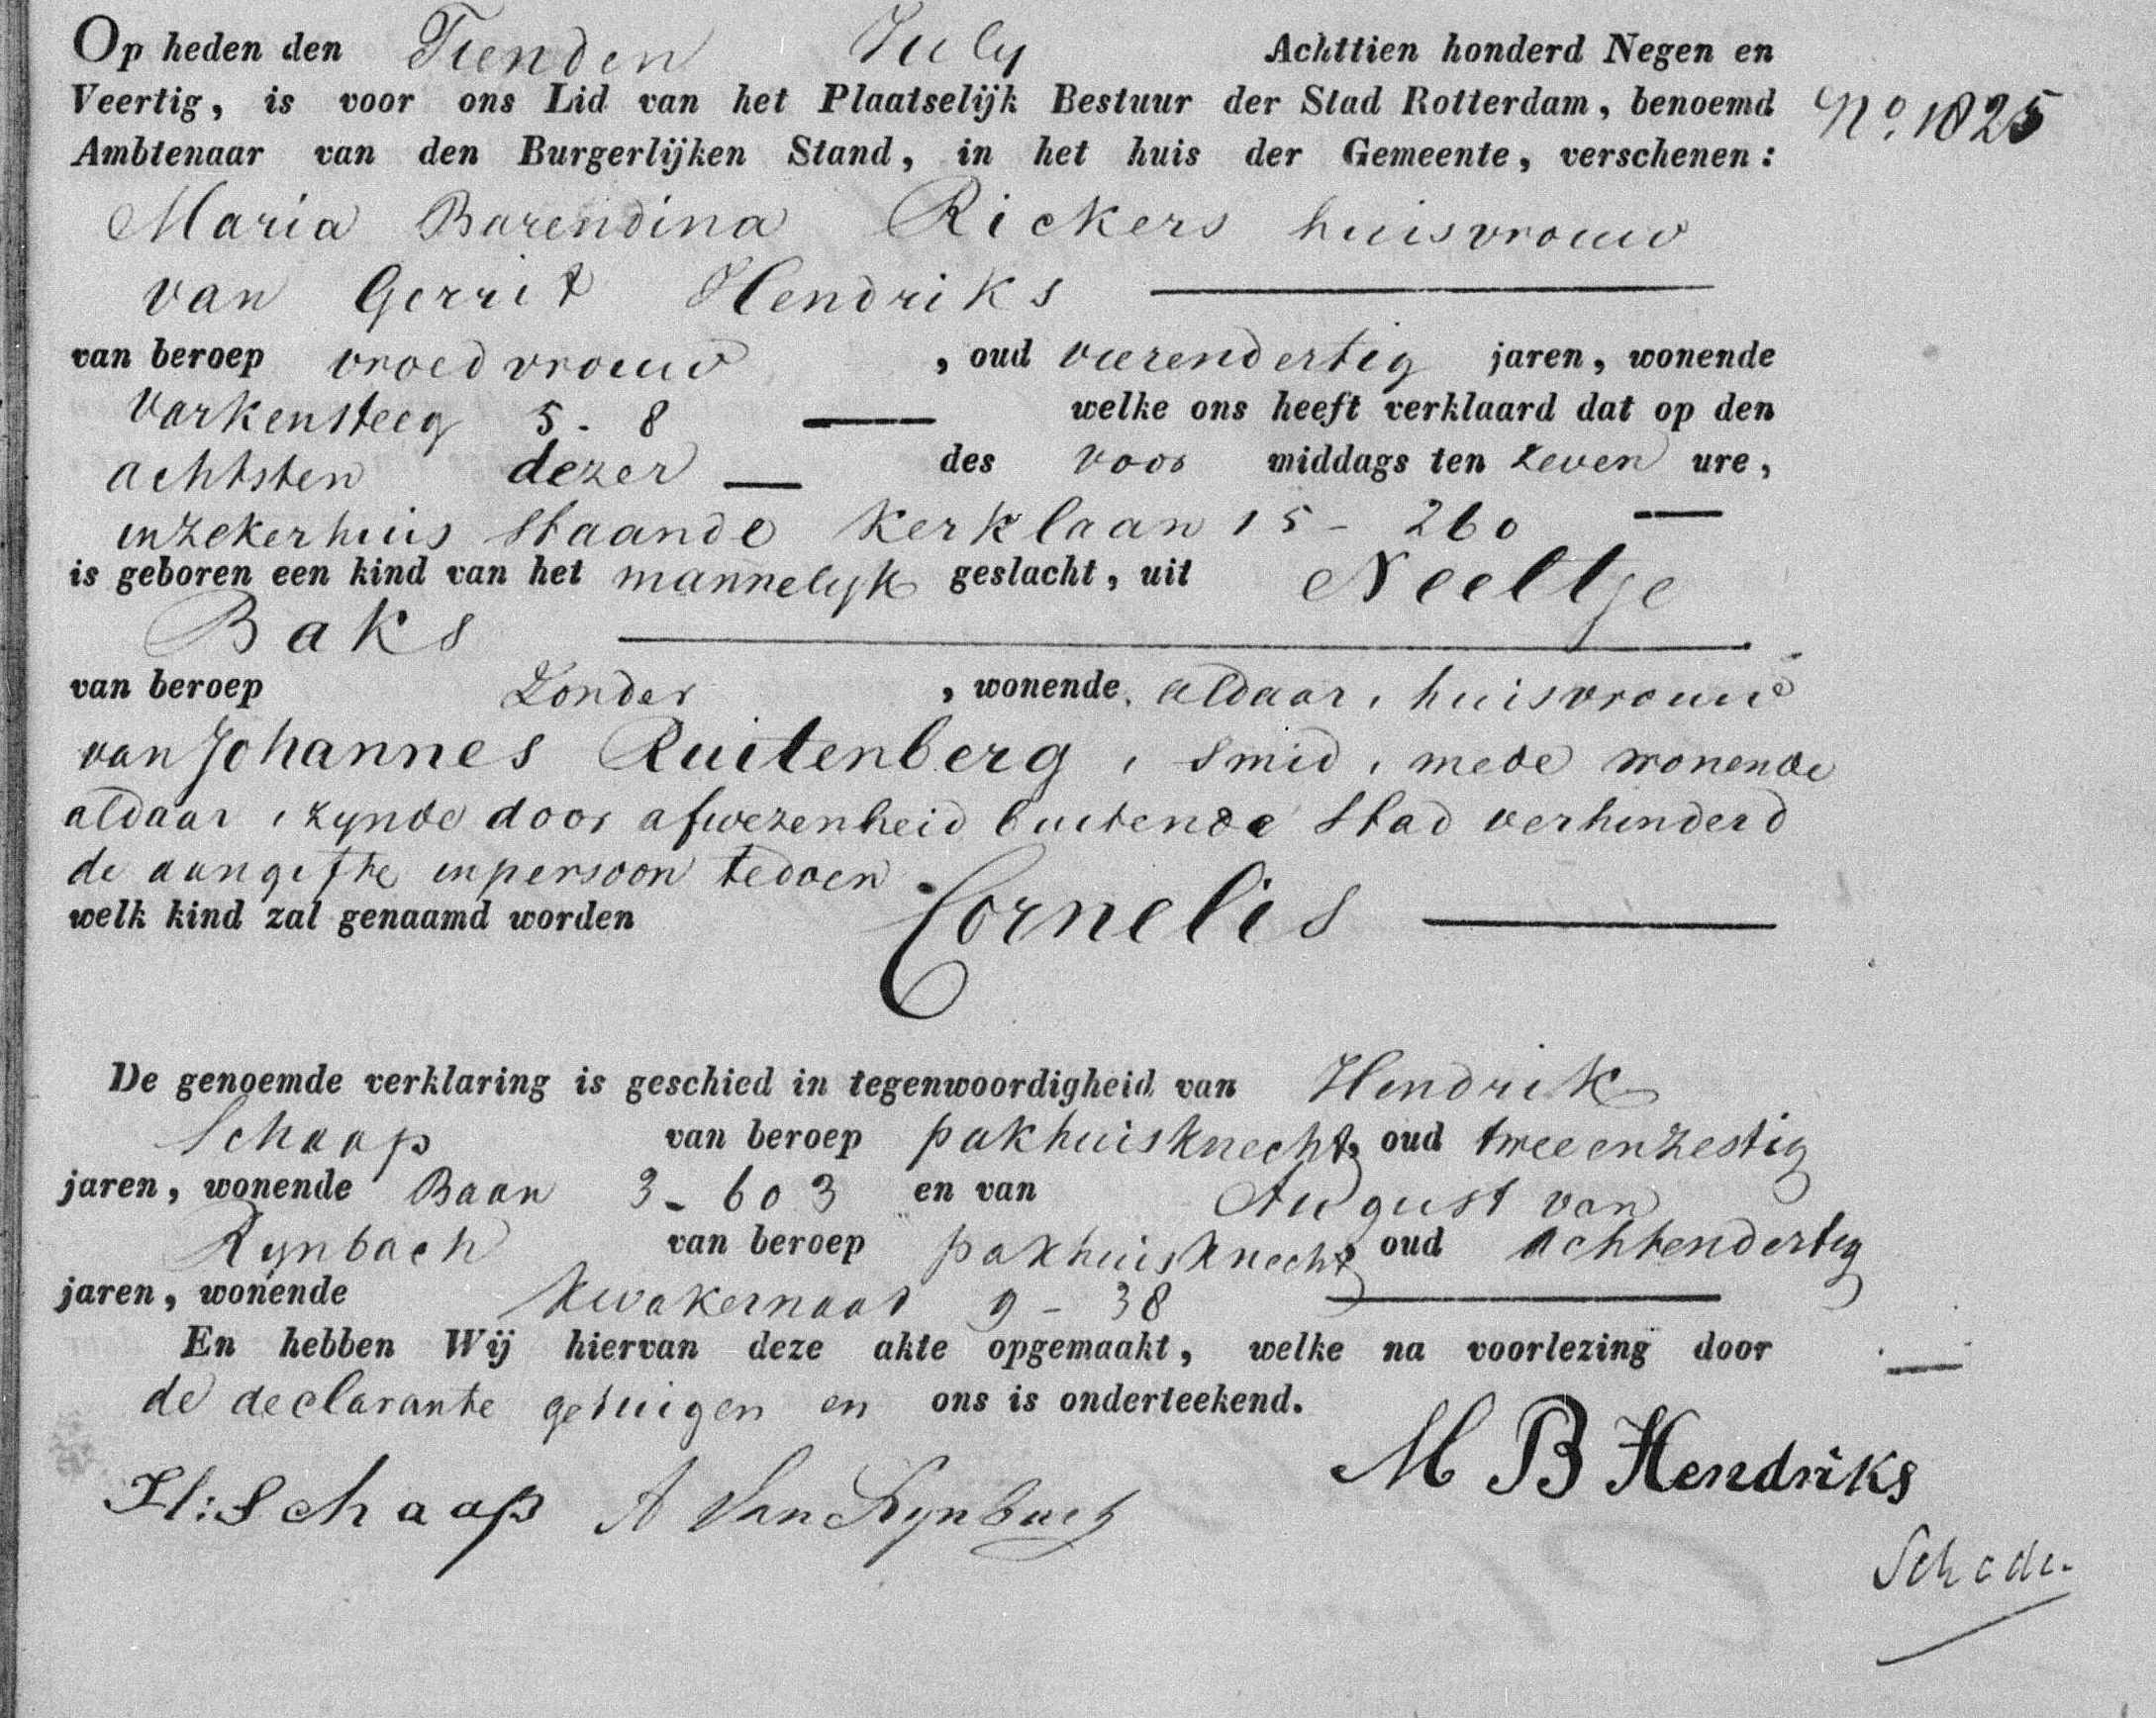 Op heden den Tienden July Achttien honderd Negen en
Veertig, is voor ons Lid van het Plaatselijk Bestuur der Stad Rotterdam, benoemd No. 1825
Ambtenaar van den Burgerlijken Stand, in het huis der Gemeente, verschenen:
Maria Barendina Rickers huisvrouw
van Gerrit Hendriks
van beroep vroedvrouw, oud vierendertig jaren, wonende
Varkensteeg 5-8 welke ons heeft verklaard dat op den
achtsten dezer des voor middags ten zeven ure,
in zeker huis staande Kerklaan 15-260
is geboren een kind van het mannelyk geslacht, uit Neeltje
Baks
van beroep Zonder, wonende aldaar, huisvrouw
van Johannes Ruitenberg, smid, mede wonende
aldaar, zynde door afwezenheid buiten de Stad verhinderd
de aangifte in persoon te doen
welk kind zal genaamd worden Cornelis
De genoemde verklaring is geschied in tegenwoordigheid van Hendrik
Schaap van beroep pakhuisknecht, oud tweeenzestig
jaren, wonende Baan 3-603 en van August van
Rynbach van beroep pakhuisknecht oud achtendertig
jaren, wonende Kwakernaat 9-38
En hebben Wij hiervan deze akte opgemaakt, welke na voorlezing door
de declarante getuigen en ons is onderteekend.
M B Hendriks
H: Schaap A Van Rynbach